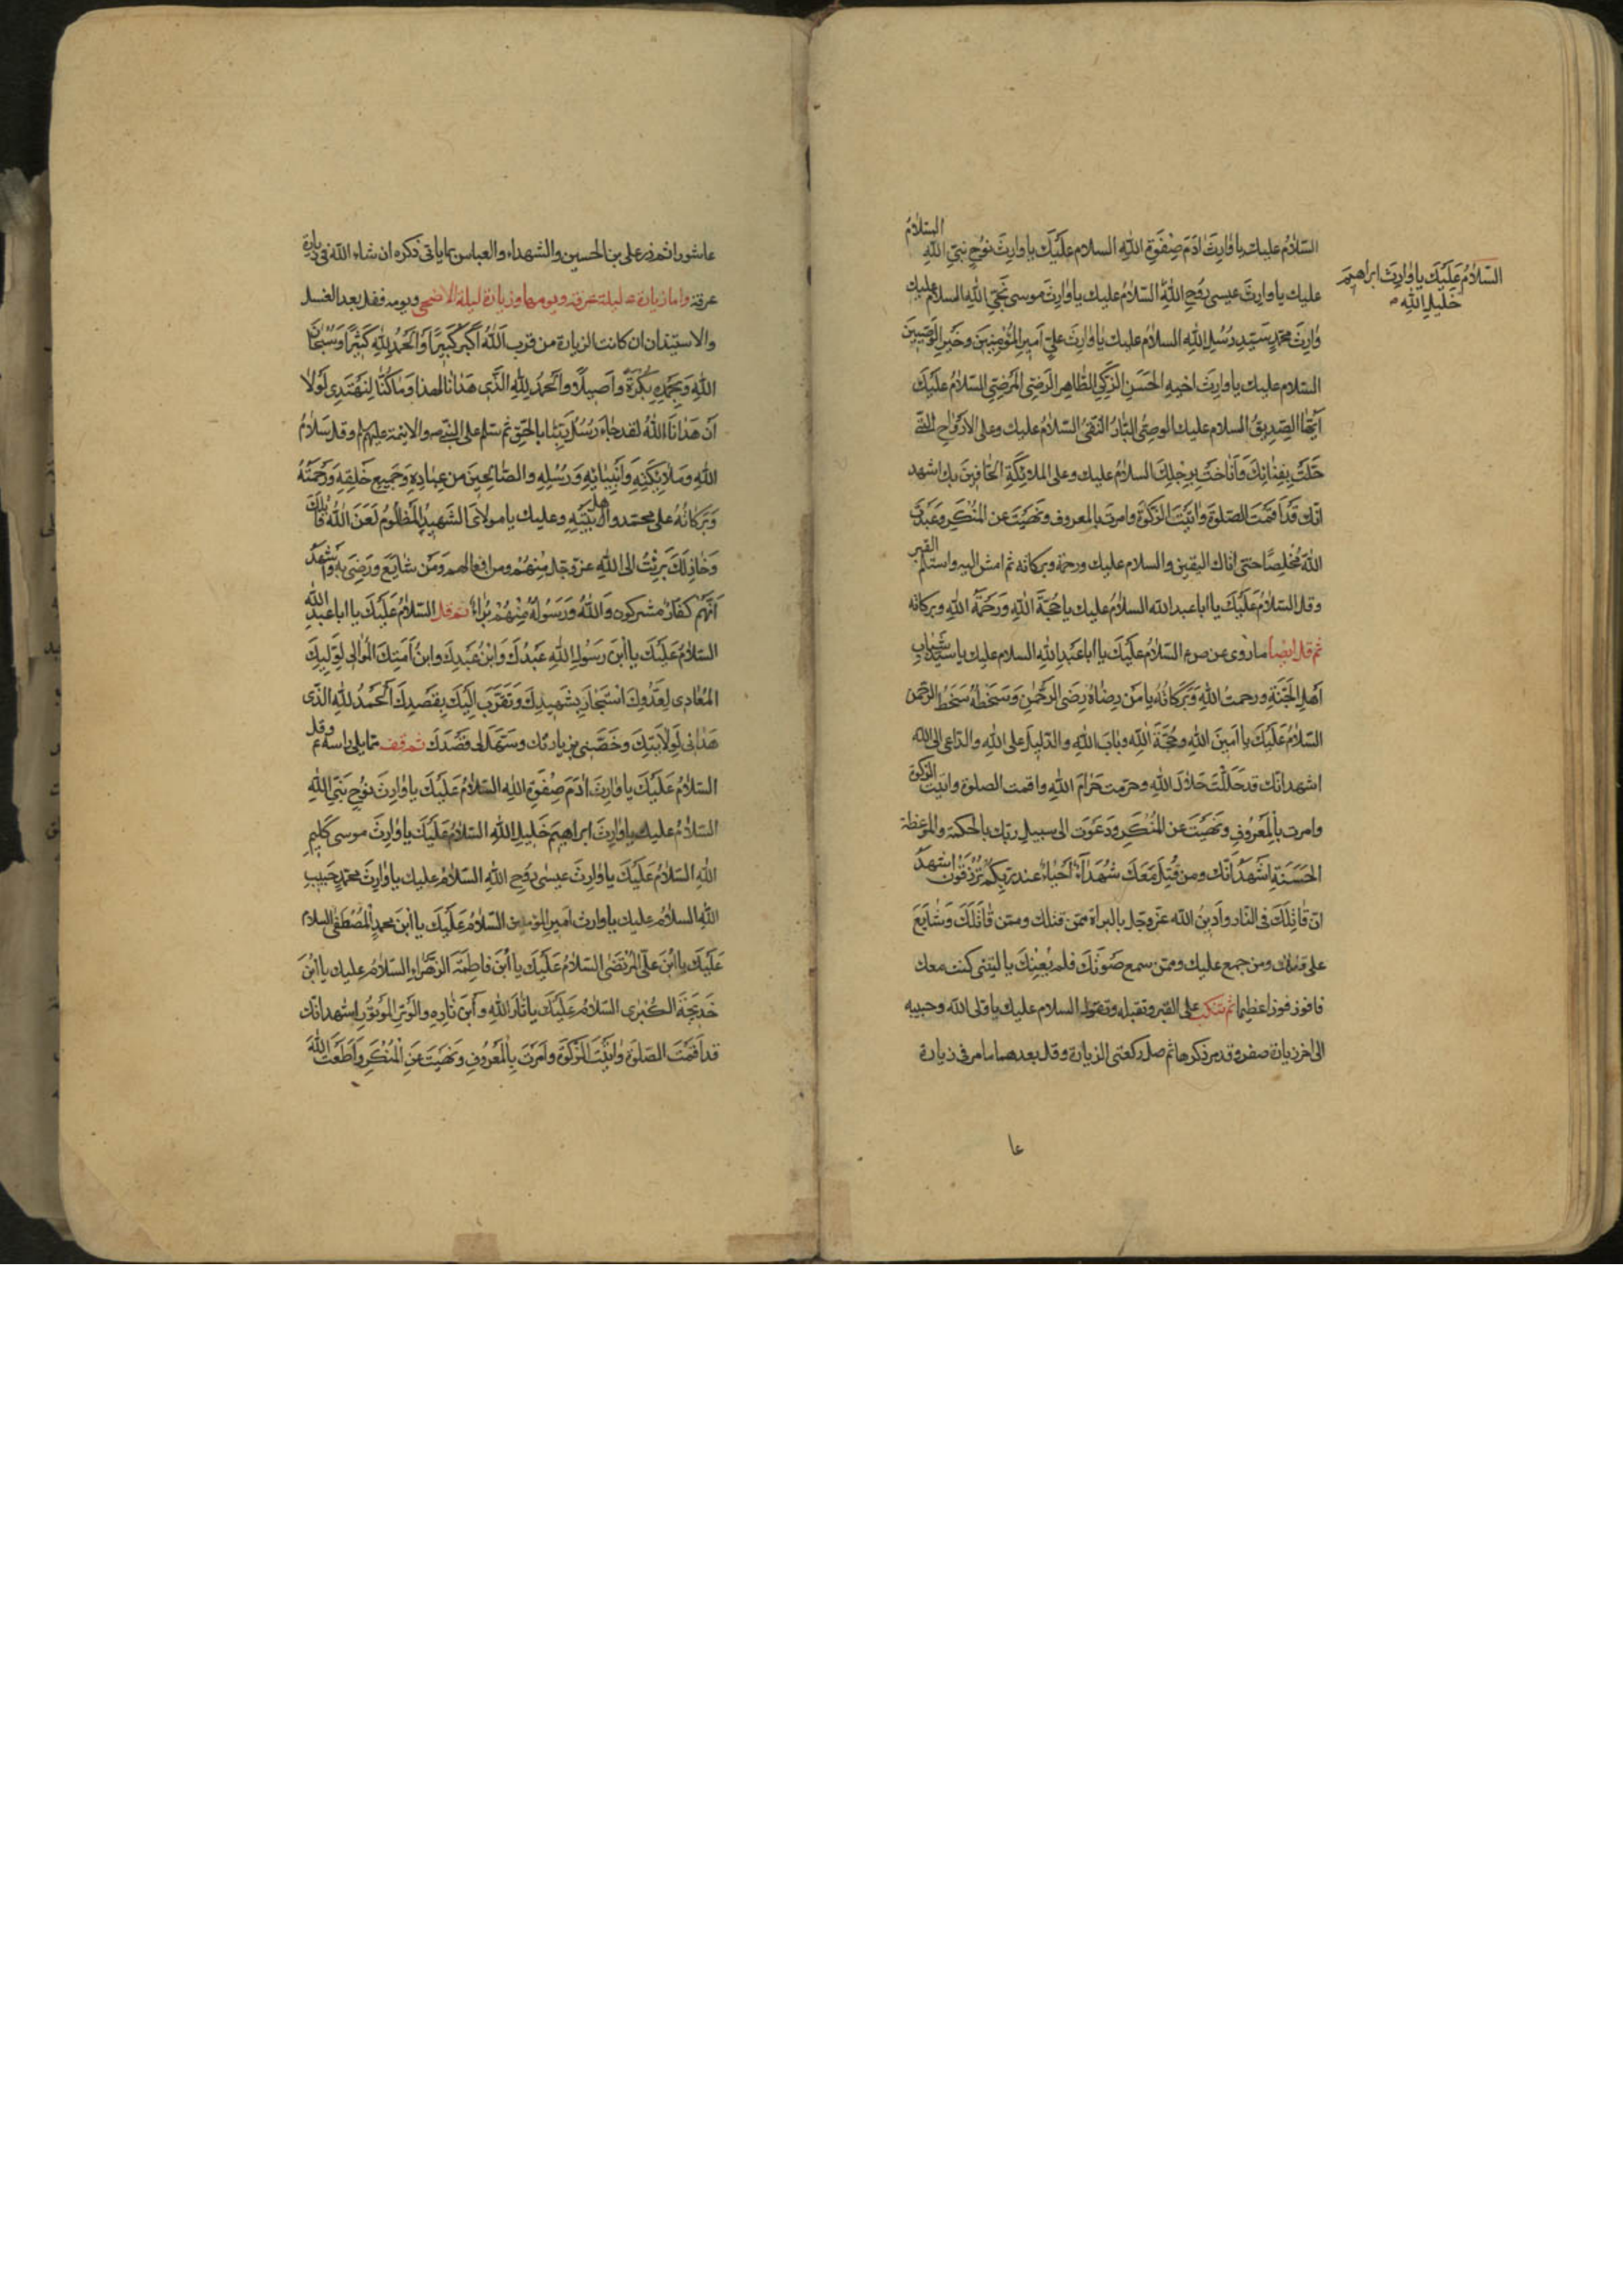 السَّلامُ عليك يا وارِثَ ادَمَ صِفْوَةِ اللهِ السلام عَلَيْكَ يا وارِثَ نوُحٍ نبَيِّ اللهِ السَّلامُ
السَّلامُ عَلَيْكَ يا وارِثَ ابراهيمَ
خَليلِ اللهِ
عليك يا وارِثَ عيسى رُوحِ اللهِ السّلامُ عليك يا وارِثَ موسى نَجِيِّ اللهِ السلام عليك
وارِثَ محمّدٍ سَيّدِ رُسُلِ اللهِ السلامُ عليك يا وارِثَ عليٍّ اَميرِ المُؤمِنينَ وخَيرِ الوَصِيّينَ
السّلام عليك يا وارِثَ اخيهِ الحَسَنِ الزَّكِيِّ الطّاهِرِ الرَضِيِّ المَرْضِيِّ السّلامُ عَلَيْكَ
اَيُّهَا الصِّدِيقُ السلام عليك الوصِيُّ البَارُّ التَّقِيُّ السَّلامُ عليك وعلى الاَرْوَاحِ الّتي
حَلَّتْ بِفِنائِكَ وَاَناخَتْ بِرَحْلِكَ السلامُ عليك وعلى الملائِكَةِ الحَافّينَ بك اشهد
انّك قَدْ اَقَمْتَ الصّلوةَ واتَيْتَ الزّكوةَ وامرت بالمعروف ونَهَيْتَ عن المُنْكَرِ وعَبَدْتَ
اللهَ مُخْلِصًا حتى اتاك اليَقين والسلام عليك ورحمة وبركاته ثم امش اليه واستلم القبر
وقل السّلامُ عَلَيْكَ يا ابا عبد الله السلامُ عليك يا حُجَّةَ اللهِ وَرَحْمَةُ اللهِ وبركاته
ثم قل ايضا ما روى عن ص م السّلامُ عَلَيْكَ يا اَبا عَبْدِ اللهِ السلام عليك يا سيّد شَبابِ
اَهْلِ الجَنّةِ ورحمتُ اللهِ وَبَرَكاتُهُ يا مَن رِضاهُ رِضَى الرَّحْمٰنِ وَسَخَطُهُ سَخَطُ الرّحمن
السّلامُ عَلَيْكَ يا اَمينَ اللهِ وحُجَّةَ اللهِ وبابَ اللهِ والدّليلَ على اللهِ والدّاعى الى الله
اشهد انّك قد حَلَّلْتَ حَلالَ اللهِ وحرّمت حَرامَ اللهِ واقمت الصلوة واتيت الزكوة
وامرت بِالمَعْرُوفِ ونَهَيْتَ عن المُنْكَرِ ودَعَوْتَ الى سبيلِ ربّك بالحكمة والموعظة
الحَسَنةِ اَشْهَدُ اَنّك ومن قُتِلَ مَعَكَ شُهَدَاءُ اَحْياءٌ عند ربّكم تُرْزَقُون اشهدُ
انّ قاتِلَكَ في النّار واَدينُ اللهَ عزّ وجلّ بالبراة ممّن قتلك وممّن قاتَلَكَ وَشايَعَ
على قتلك ومن جمع عليك وممّن سمع صَوْتَكَ فلم يُعِنْكَ يا ليتني كنت معك
فافوز فوزا عظيما ثم تنكب على القبر وتقبله وتقول السلام عليك يا ولى الله وحبيبه
الى اخر زيارة صفر وقد مر ذكرها ثم صل ركعتى الزيارة وقل بعدهما ما مر في زيارة
عا
عاشورا ثم زر على بن الحسين والشهداء والعباس بما ياتى ذكره ان شاء الله في زيارة
عرفة واما زيارة ع ليلة عرفة ويومها وزيارة ليلة الاضحى ويومه فقل بعد الغسل
والاستيذان ان كانت الزيارة من قرب اَللهُ اكْبَرُ كَبيرًا وَالحَمْدُ لِلّهِ كَثيرًا وَسُبْحانَ
اللهِ وَبِحَمْدِهِ بُكْرَةً واَصيلًا واَلْحَمْدُ لِلّهِ الّذى هَدانا لهذا وَما كُنّا لِنَهْتَدِىَ لَوْلا
اَنْ هَدانَا اللهُ لقد جاءَ رُسُلُ رَبِّنا بِالحَقِّ ثم سلم على النّبي ص والائمة عليهم وقل سَلامُ
اللهِ وَمَلائِكَتِهِ وَاَنْبِيائِهِ وَرُسُلِهِ والصّالِحينَ مِن عِبادِهِ وجَميعِ خَلقِهِ وَرَحْمَتُهُ
وَبَرَكاتُهُ على محمّد واَهل بَيْتِهِ وعليك يا مولاىَ الشَهيدُ المَظلُومُ لَعَنَ اللهُ قاتِلَكَ
وَخاذِلَكَ بَرِئْتُ الى اللهِ عزّ وجلّ مِنْهُمْ ومن افعالهم وَمَن شايَعَ ورَضِىَ بِه وَاَشْهَدُ
اَنّهُمْ كفّارٌ مشركون وَاللهُ وَرَسُولُهُ مِنْهُمْ بُراءٌ ثم قل السّلامُ عَلَيْكَ يا ابا عبد اللهِ
السّلامُ عَلَيْكَ يا ابْنَ رَسُولِ اللهِ عَبْدُكَ وَابْنُ عَبْدِكَ وابنُ اَمَتِكَ المُوالى لِوَلِيِّكَ
المُعادى لِعَدُوِّكَ اسْتَجارَ بِشَهيدِكَ وَتَقَرَّبَ اِلَيْكَ بِقَصْدِكَ اَلْحَمْدُ لِلّهِ الّذى
هَدانى لِوَلايَتِكَ وخَصَّنى بزيارتك وسَهّلَ لى قَصْدَكَ ثم قف مما يلى راسه ع وقل
السّلامُ عَلَيْكَ يا وارِثَ ادَمَ صِفْوَةِ اللهِ السّلامُ عَلَيْكَ يا وارِثَ نوُحٍ نَبِيِّ اللهِ
السّلامُ عليك يا وارِثَ ابراهيمَ خَليلِ اللهِ السّلامُ عَلَيْكَ يا وارِثَ موسى كَليمِ
اللهِ السّلامُ عَلَيْكَ يا وارِثَ عيسى رُوحِ اللهِ السّلامُ عليك يا وارِثَ محمّدٍ حَبيبِ
اللهِ السلامُ عليك يا وارث اميرِ المؤمنين السّلامُ عَلَيْكَ يا ابْنَ محمدٍ المُصْطَفٰى السلام
عَلَيْكَ يا ابْنَ عَلِيٍّ المُرْتَضٰى السّلامُ عَلَيْكَ يا ابْنَ فاطِمَةَ الزَهْراءِ السّلامُ عليك يا ابْنَ
خَديجَةَ الكُبْرى السّلامُ عَلَيْكَ يا ثارَ اللهِ وابْنَ ثارِهِ والوِتْرَ المَوْتُورَ اشهد انّك
قد اَقَمْتَ الصّلوةَ واتَيْتَ الزّكوةَ واَمَرْتَ بِالْمَعْرُوفِ ونَهَيْتَ عَنِ الْمُنْكَرِ واَطَعْتَ اللهَ